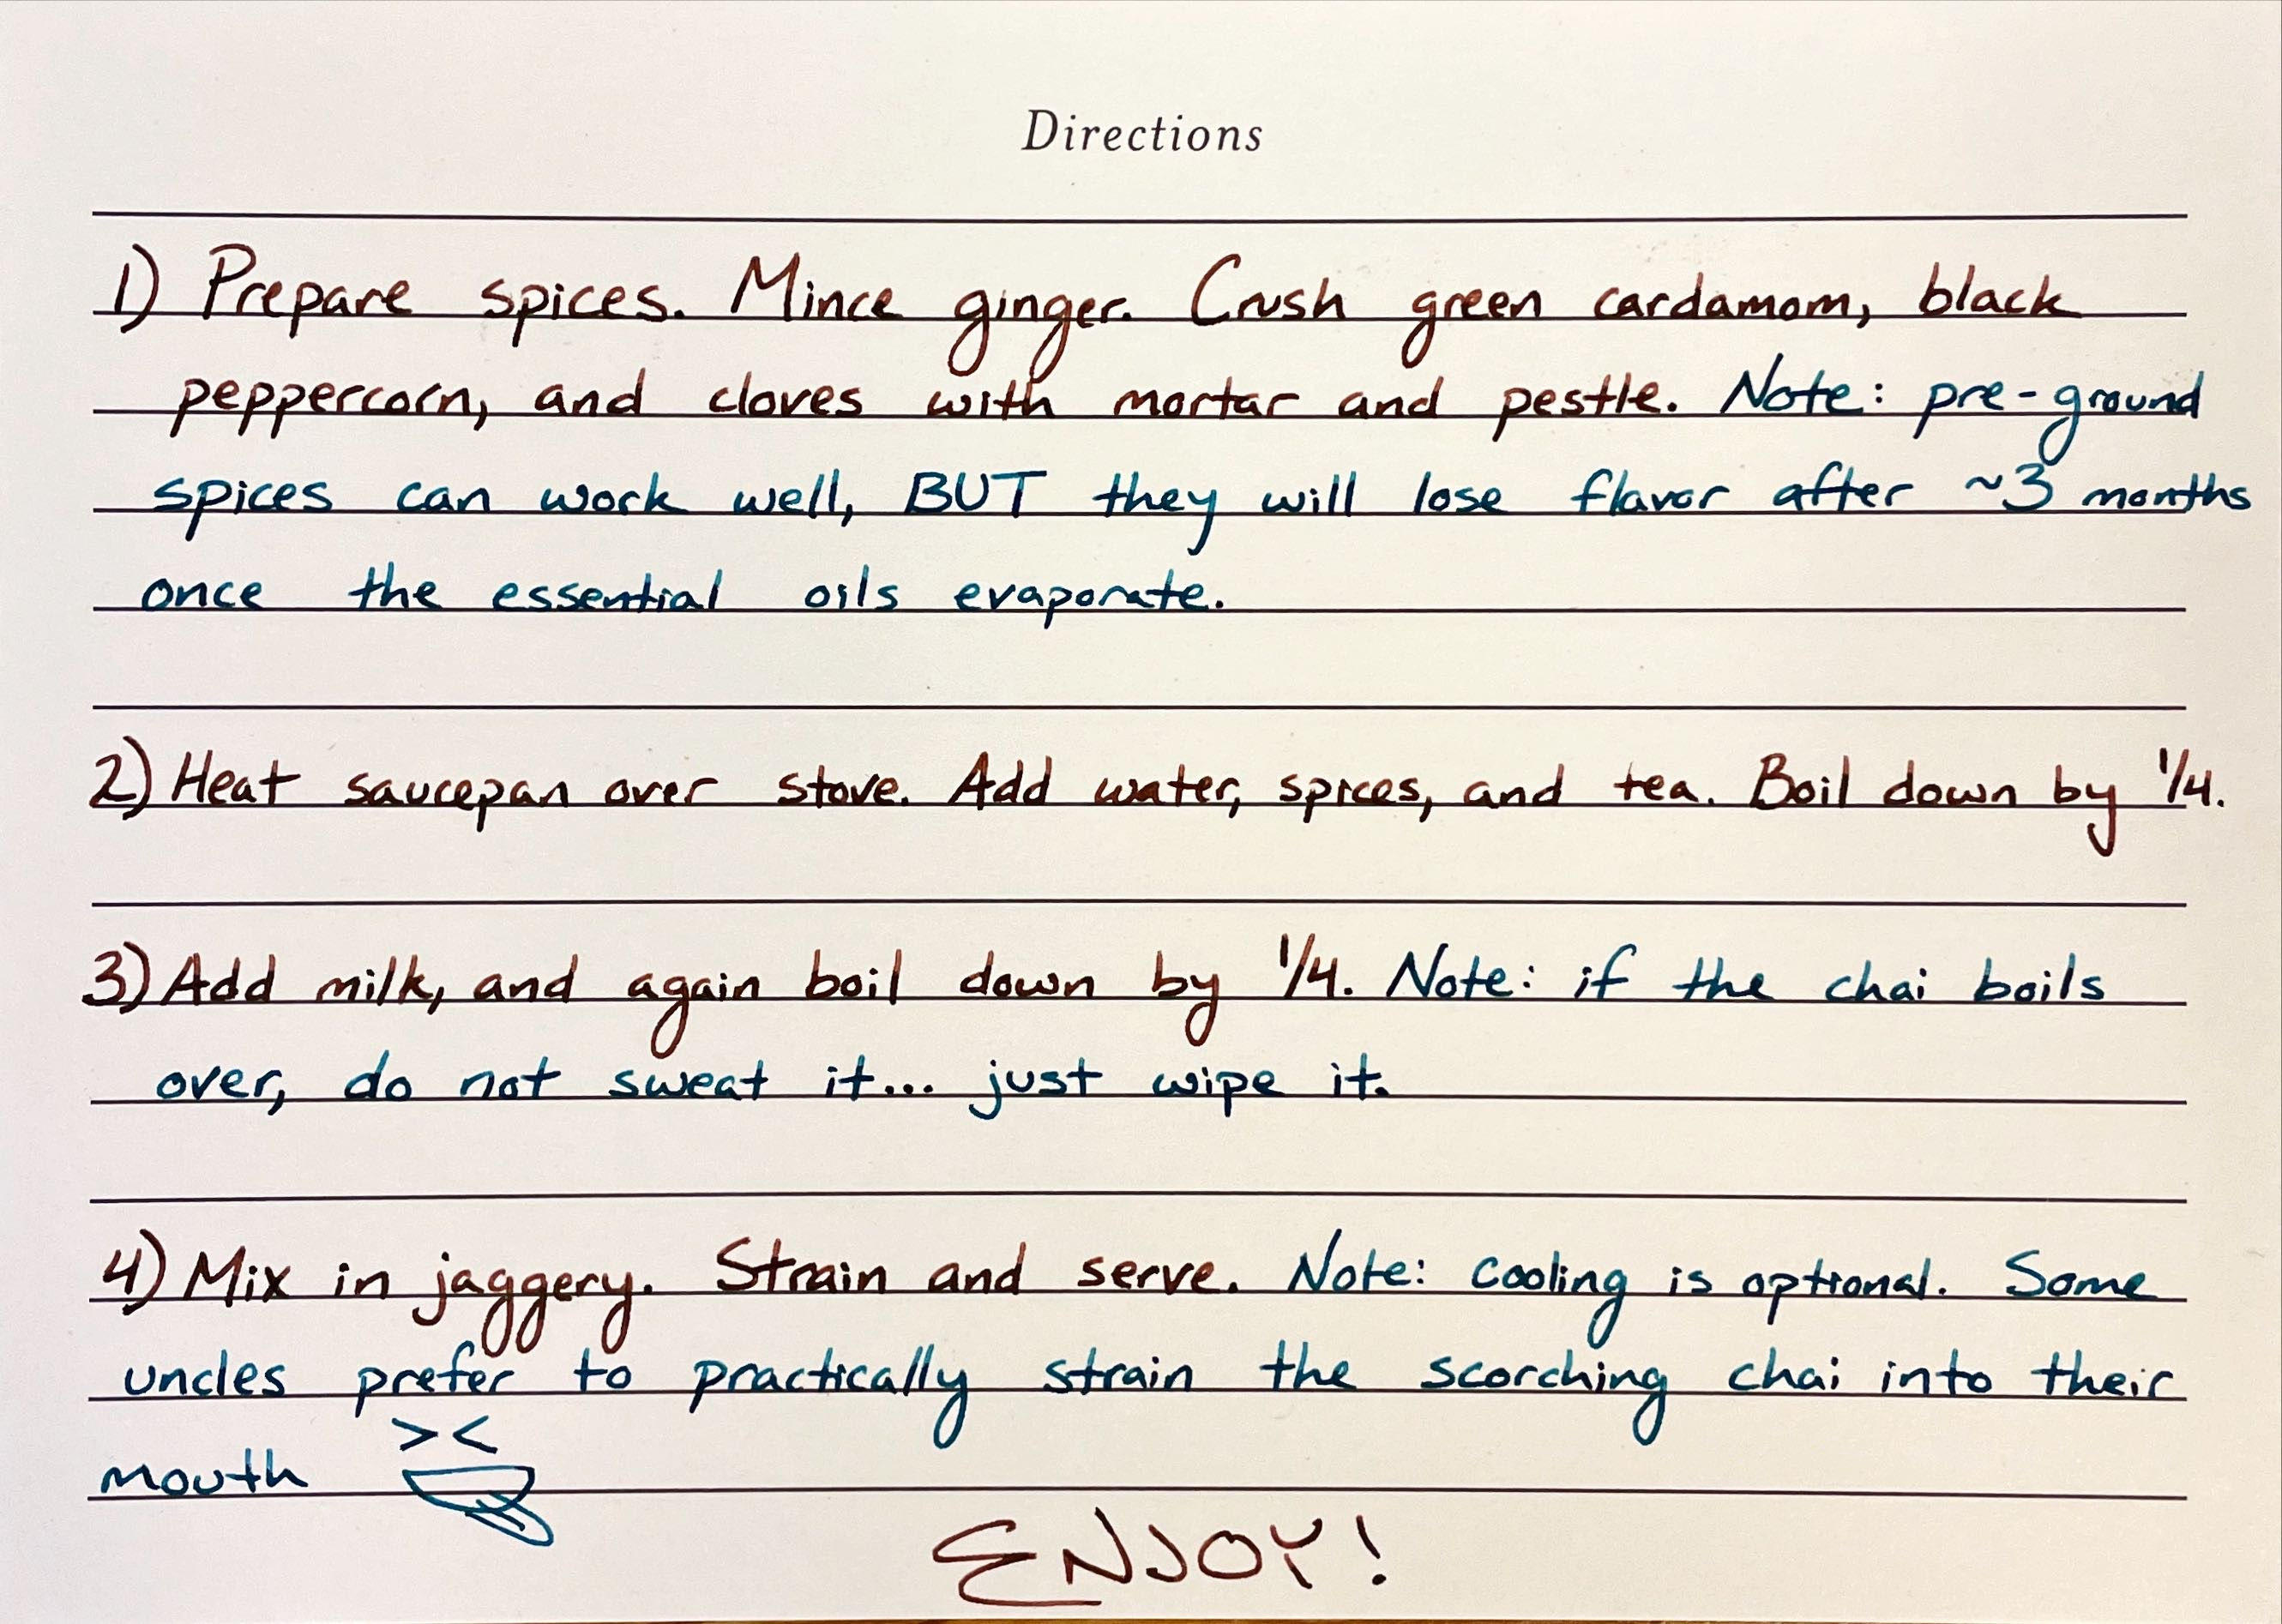 Directions
1) Prepare spices. Mince ginger. Crush green cardamom, black
peppercorn, and cloves with mortar and pestle. Note: pre-ground
spices can work well, BUT they will lose flavor after ~3 months
once the essential oils evaporate.
2) Heat saucepan over stove. Add water, spices, and tea. Boil down by 1/4.
3) Add milk, and again boil down by 1/4. Note: if the chai boils
over, do not sweat it... just wipe it.
4) Mix in jaggery. Strain and serve. Note: cooling is optional. Some
uncles prefer to practically strain the scorching chai into their
mouth
ENJOY!